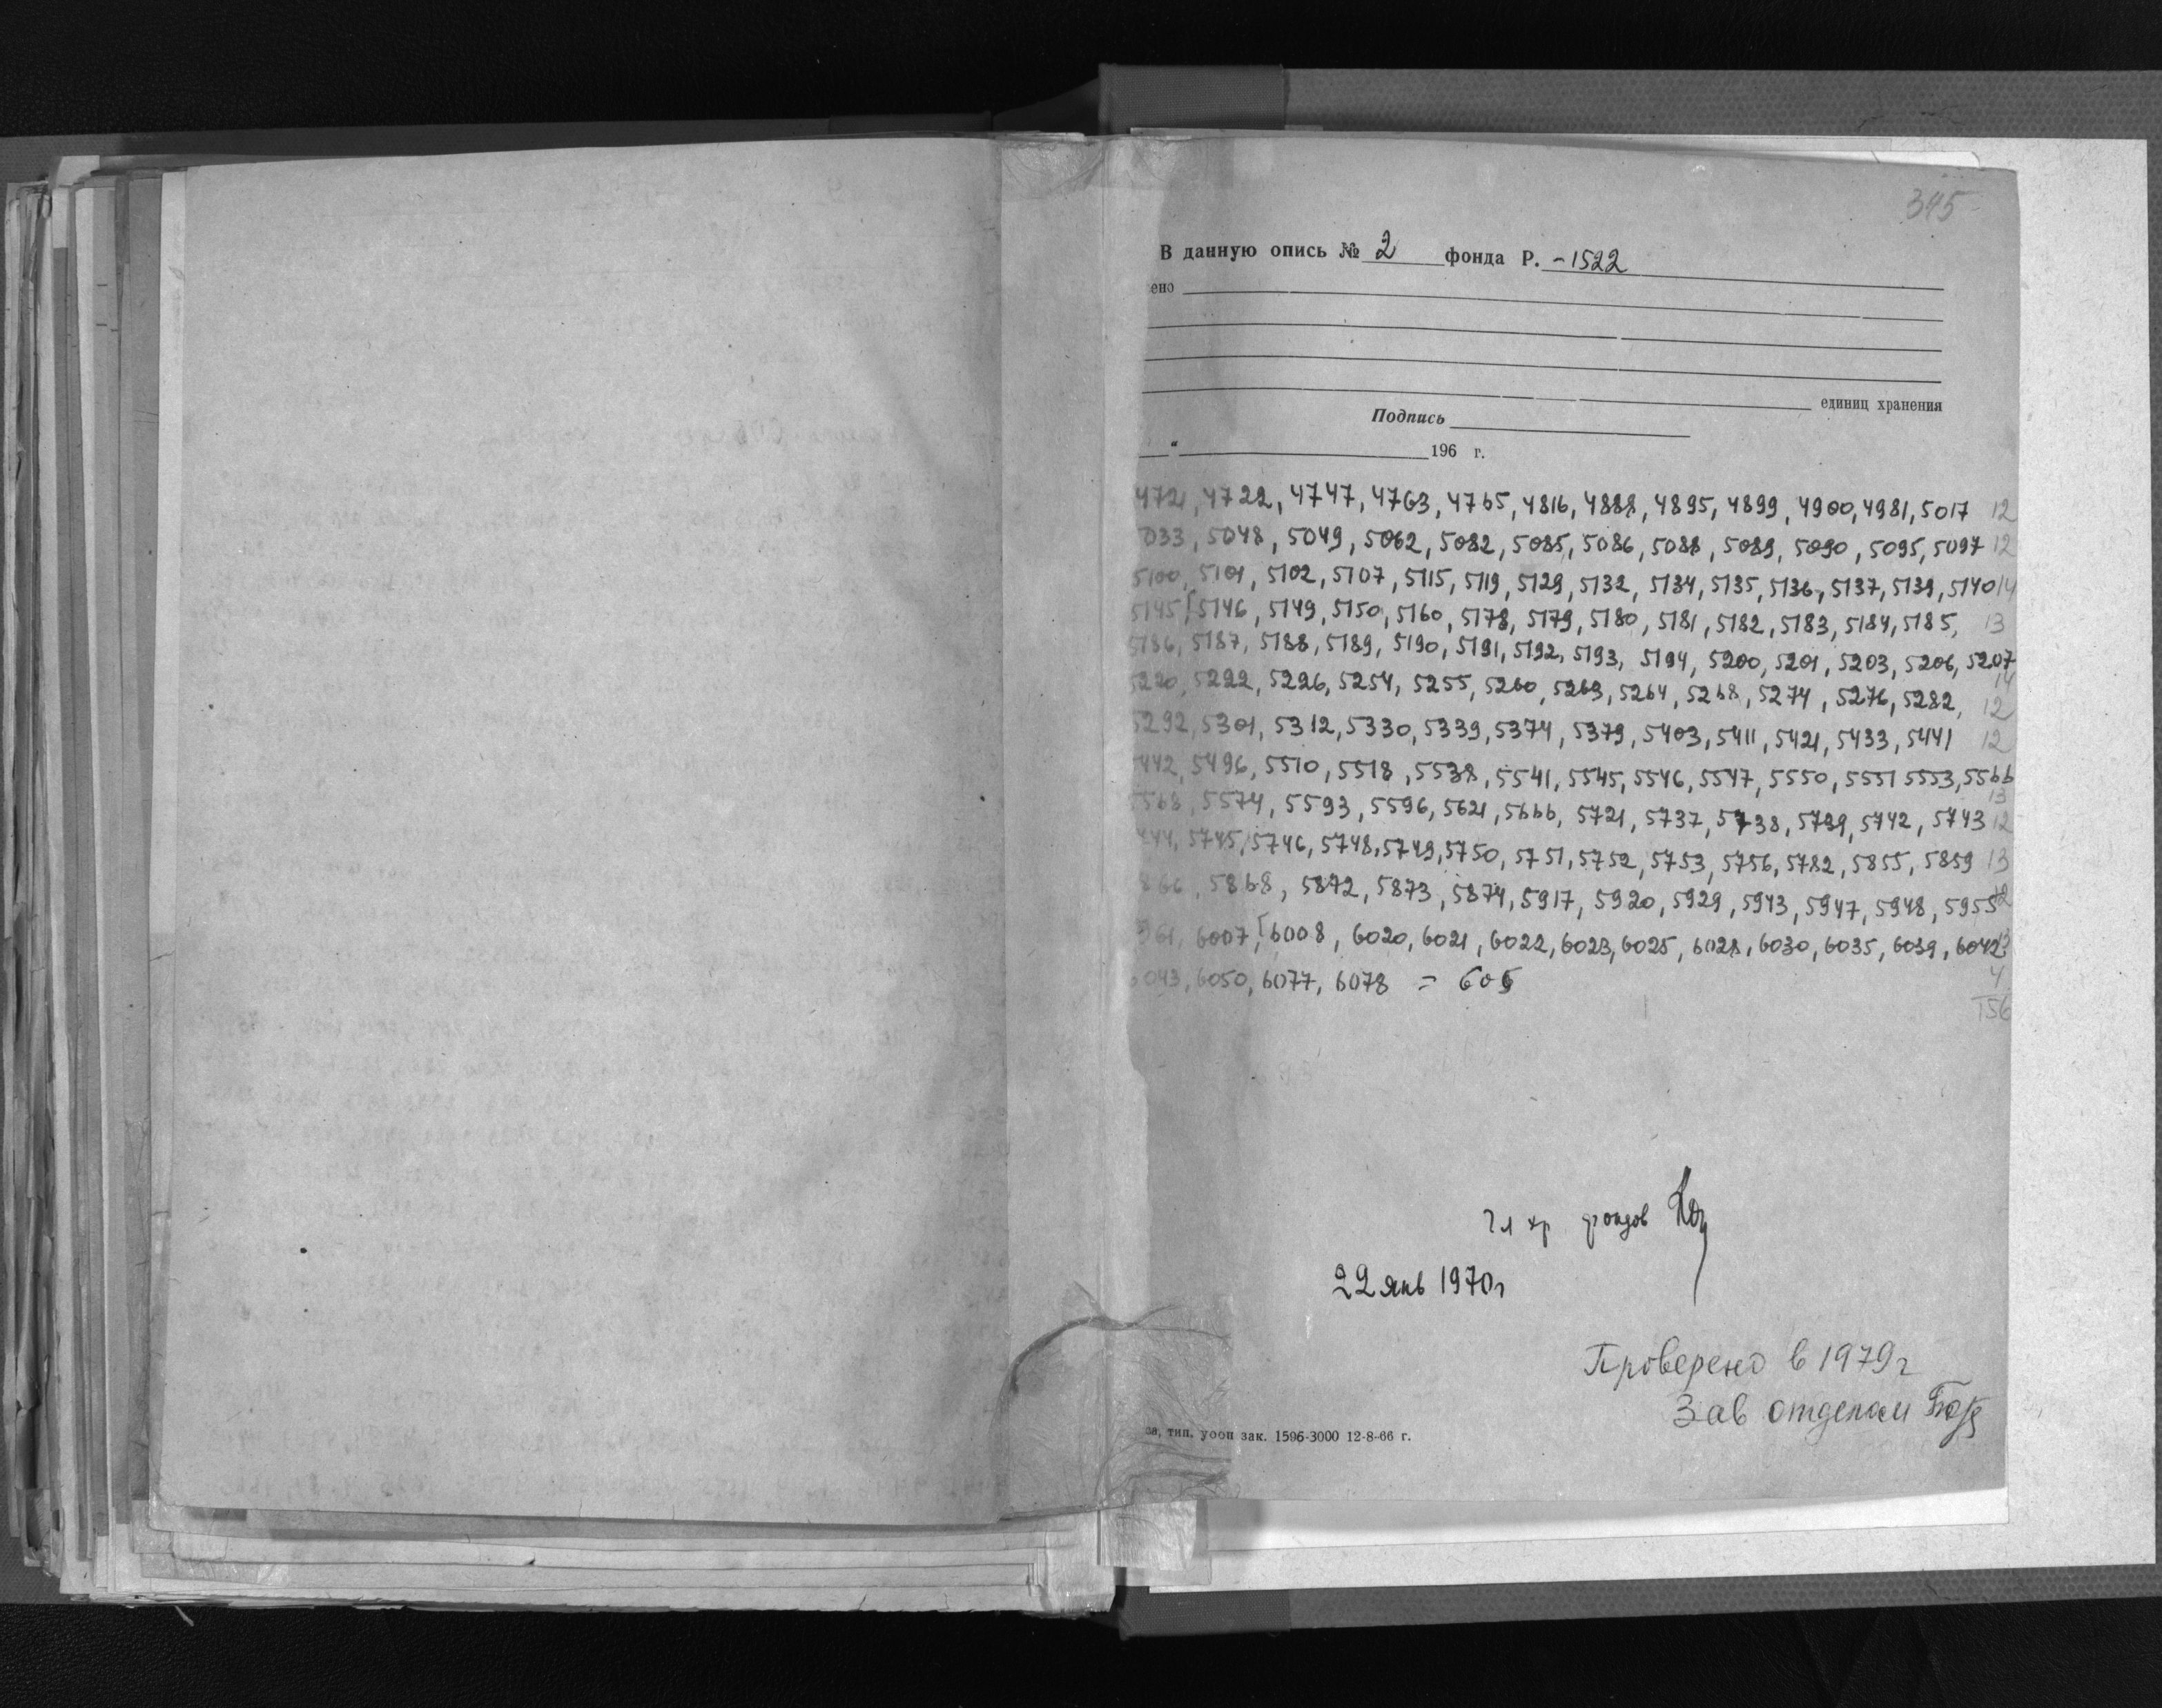 345
В данную опись № 2 фонда Р. -1522
ено
единиц хранения
Подпись
" 196 г.
4721, 4722, 4747, 4763, 4765, 4816, 4888, 4895, 4899, 4900, 4981, 5017 12
033, 5048, 5049, 5062, 5082, 5085, 5086, 5088, 5089, 5090, 5095, 5097 12
5100, 5101, 5102, 5107, 5115, 5119, 5129, 5132, 5134, 5135, 5136, 5137, 5139, 5140 14
5145, 5146, 5149, 5150, 5160, 5178, 5179, 5180, 5181, 5182, 5183, 5184, 5185, 13
5186, 5187, 5188, 5189, 5190, 5191, 5192, 5193, 5194, 5200, 5201, 5203, 5206, 5207 14
5220, 5222, 5226, 5254, 5255, 5260, 5263, 5264, 5268, 5274, 5276, 5282, 12
5292, 5301, 5312, 5330, 5339, 5374, 5379, 5403, 5411, 5421, 5433, 5441 12
442, 5496, 5510, 5518, 5538, 5541, 5545, 5546, 5547, 5550, 5551 5553, 5566 13
5568, 5574, 5593, 5596, 5621, 5666, 5721, 5737, 5738, 5739, 5742, 5743 12
744, 5745, 5746, 5748, 5749, 5750, 5751, 5752, 5753, 5756, 5782, 5855, 5859 13
866, 5868, 5872, 5873, 5874, 5917, 5920, 5929, 5943, 5947, 5948, 5955 12
961, 6007, 6008, 6020, 6021, 6022, 6023, 6025, 6028, 6030, 6035, 6039, 6042 13
6043, 6050, 6077, 6078 = 605 4
156
Гл хр фондов
22 янв 1970г
Проверено в 1979г
Зав отделом
тип. уооп зак. 1596-3000 12-8-66 г.